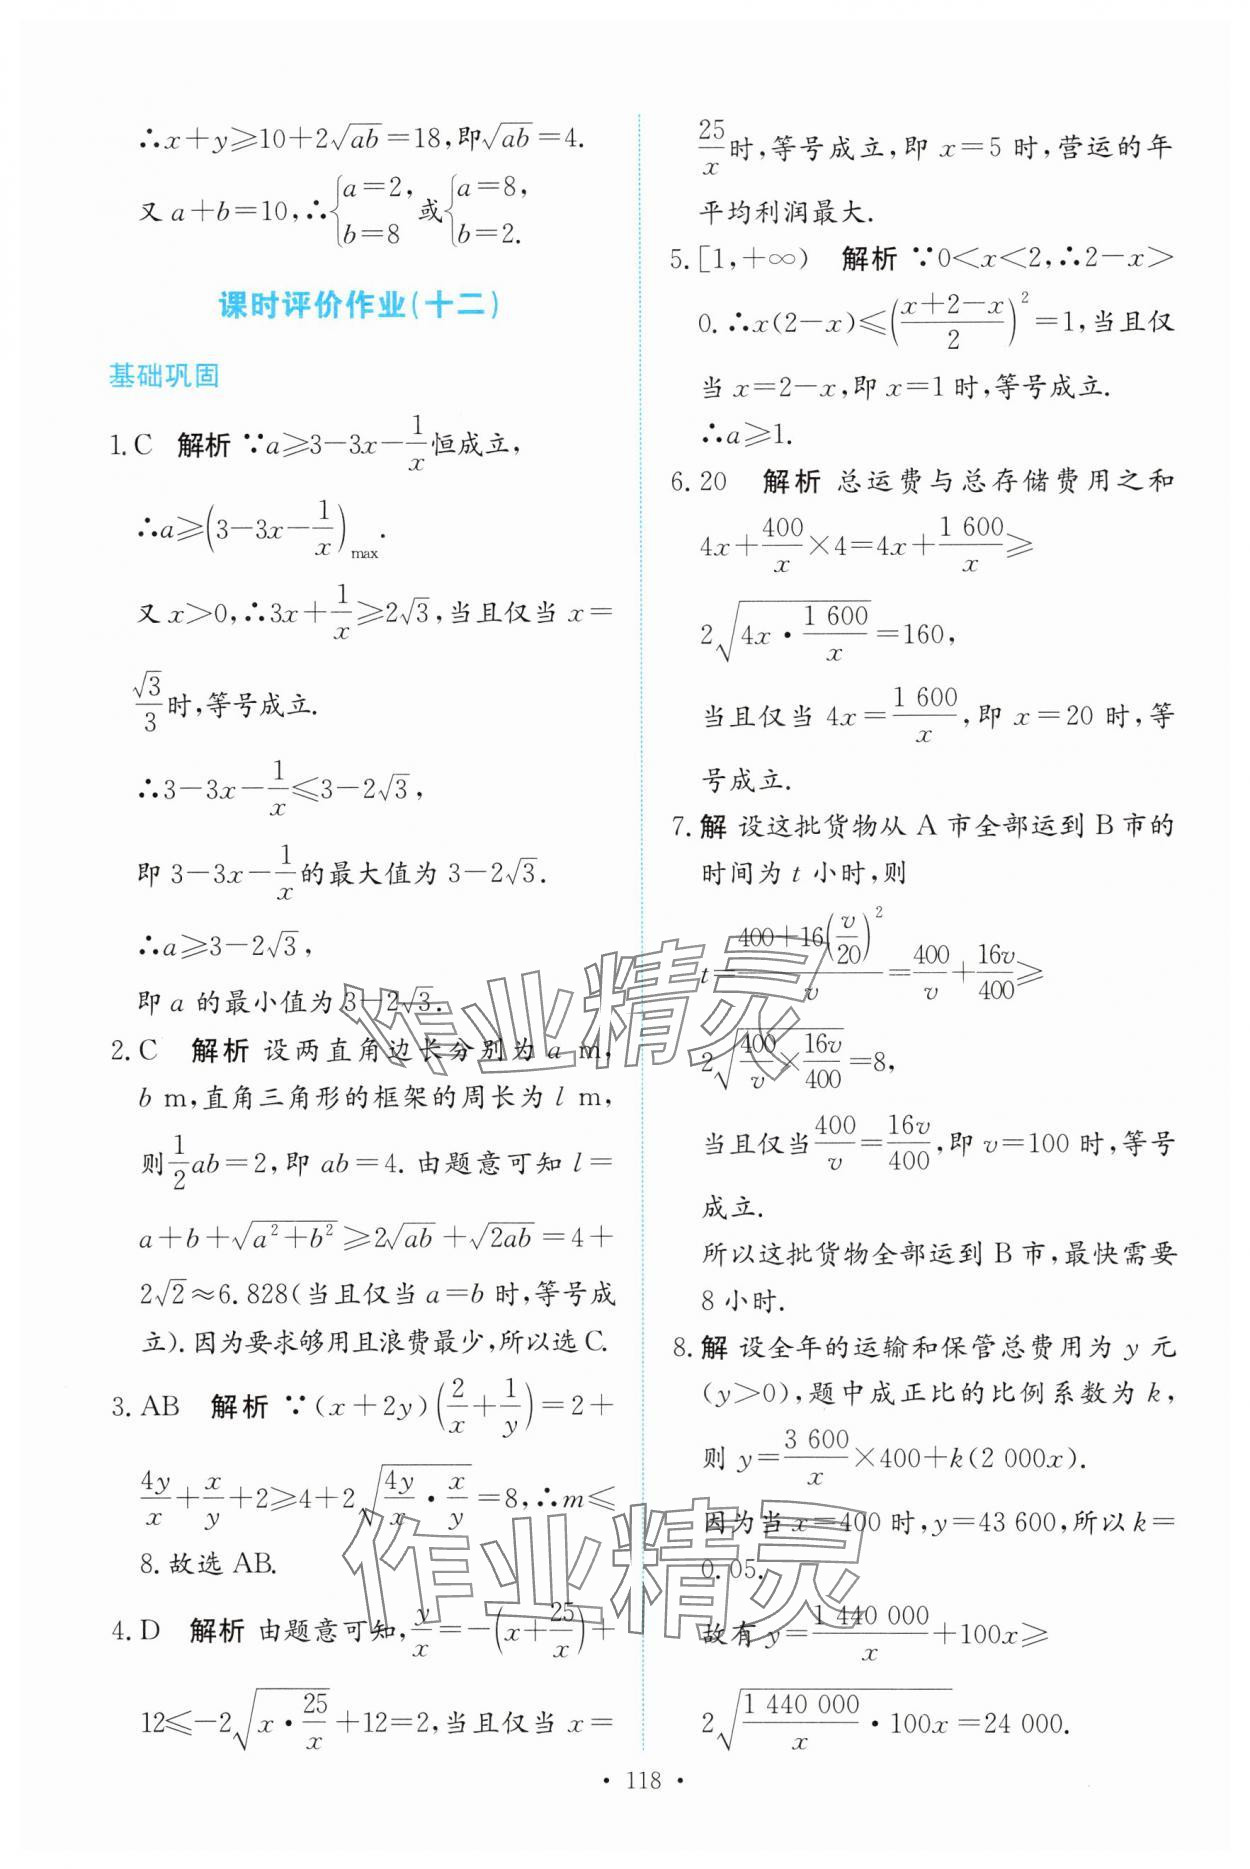 ∴x+y≥10+2√ab=18,即√ab=4.
又 a+b=10,∴{a=2, b=8 或{a=8, b=2.
课时评价作业(十二)
基础巩固
1.C 解析 ∵a≥3-3x-1/x恒成立,
∴a≥(3-3x-1/x)max.
又 x>0,∴3x+1/x≥2√3,当且仅当 x=
√3/3时,等号成立.
∴3-3x-1/x≤3-2√3,
即 3-3x-1/x的最大值为 3-2√3.
∴a≥3-2√3,
即 a 的最小值为 3-2√3.
2.C 解析 设两直角边长分别为 a m,
b m,直角三角形的框架的周长为 l m,
则1/2ab=2,即 ab=4. 由题意可知 l=
a+b+√(a²+b²)≥2√ab+√2ab=4+
2√2≈6.828(当且仅当 a=b 时,等号成
立).因为要求够用且浪费最少,所以选 C.
3. AB 解析 ∵(x+2y)(2/x+1/y)=2+
4y/x+x/y+2≥4+2√(4y/x·x/y)=8,∴m≤
8.故选 AB.
4. D 解析 由题意可知,y/x=-(x+25/x)+
12≤-2√(x·25/x)+12=2,当且仅当 x=
25/x时,等号成立,即 x=5 时,营运的年
平均利润最大.
5.[1,+∞) 解析 ∵0<x<2,∴2-x>
0.∴x(2-x)≤((x+2-x)/2)²=1,当且仅
当 x=2-x,即 x=1 时,等号成立.
∴a≥1.
6. 20 解析 总运费与总存储费用之和
4x+400/x×4=4x+1 600/x≥
2√(4x·1 600/x)=160,
当且仅当 4x=1 600/x,即 x=20 时,等
号成立.
7.解 设这批货物从 A 市全部运到 B 市的
时间为 t 小时,则
t=(400+16(v/20)²)/v=400/v+16v/400≥
2√(400/v×16v/400)=8,
当且仅当400/v=16v/400,即 v=100 时,等号
成立.
所以这批货物全部运到 B 市,最快需要
8 小时.
8.解 设全年的运输和保管总费用为 y 元
(y>0),题中成正比的比例系数为 k,
则 y=3 600/x×400+k(2 000x).
因为当 x=400 时,y=43 600,所以 k=
0.05.
故有 y=1 440 000/x+100x≥
2√(1 440 000/x·100x)=24 000.
作业精灵
作业精灵
· 118 ·